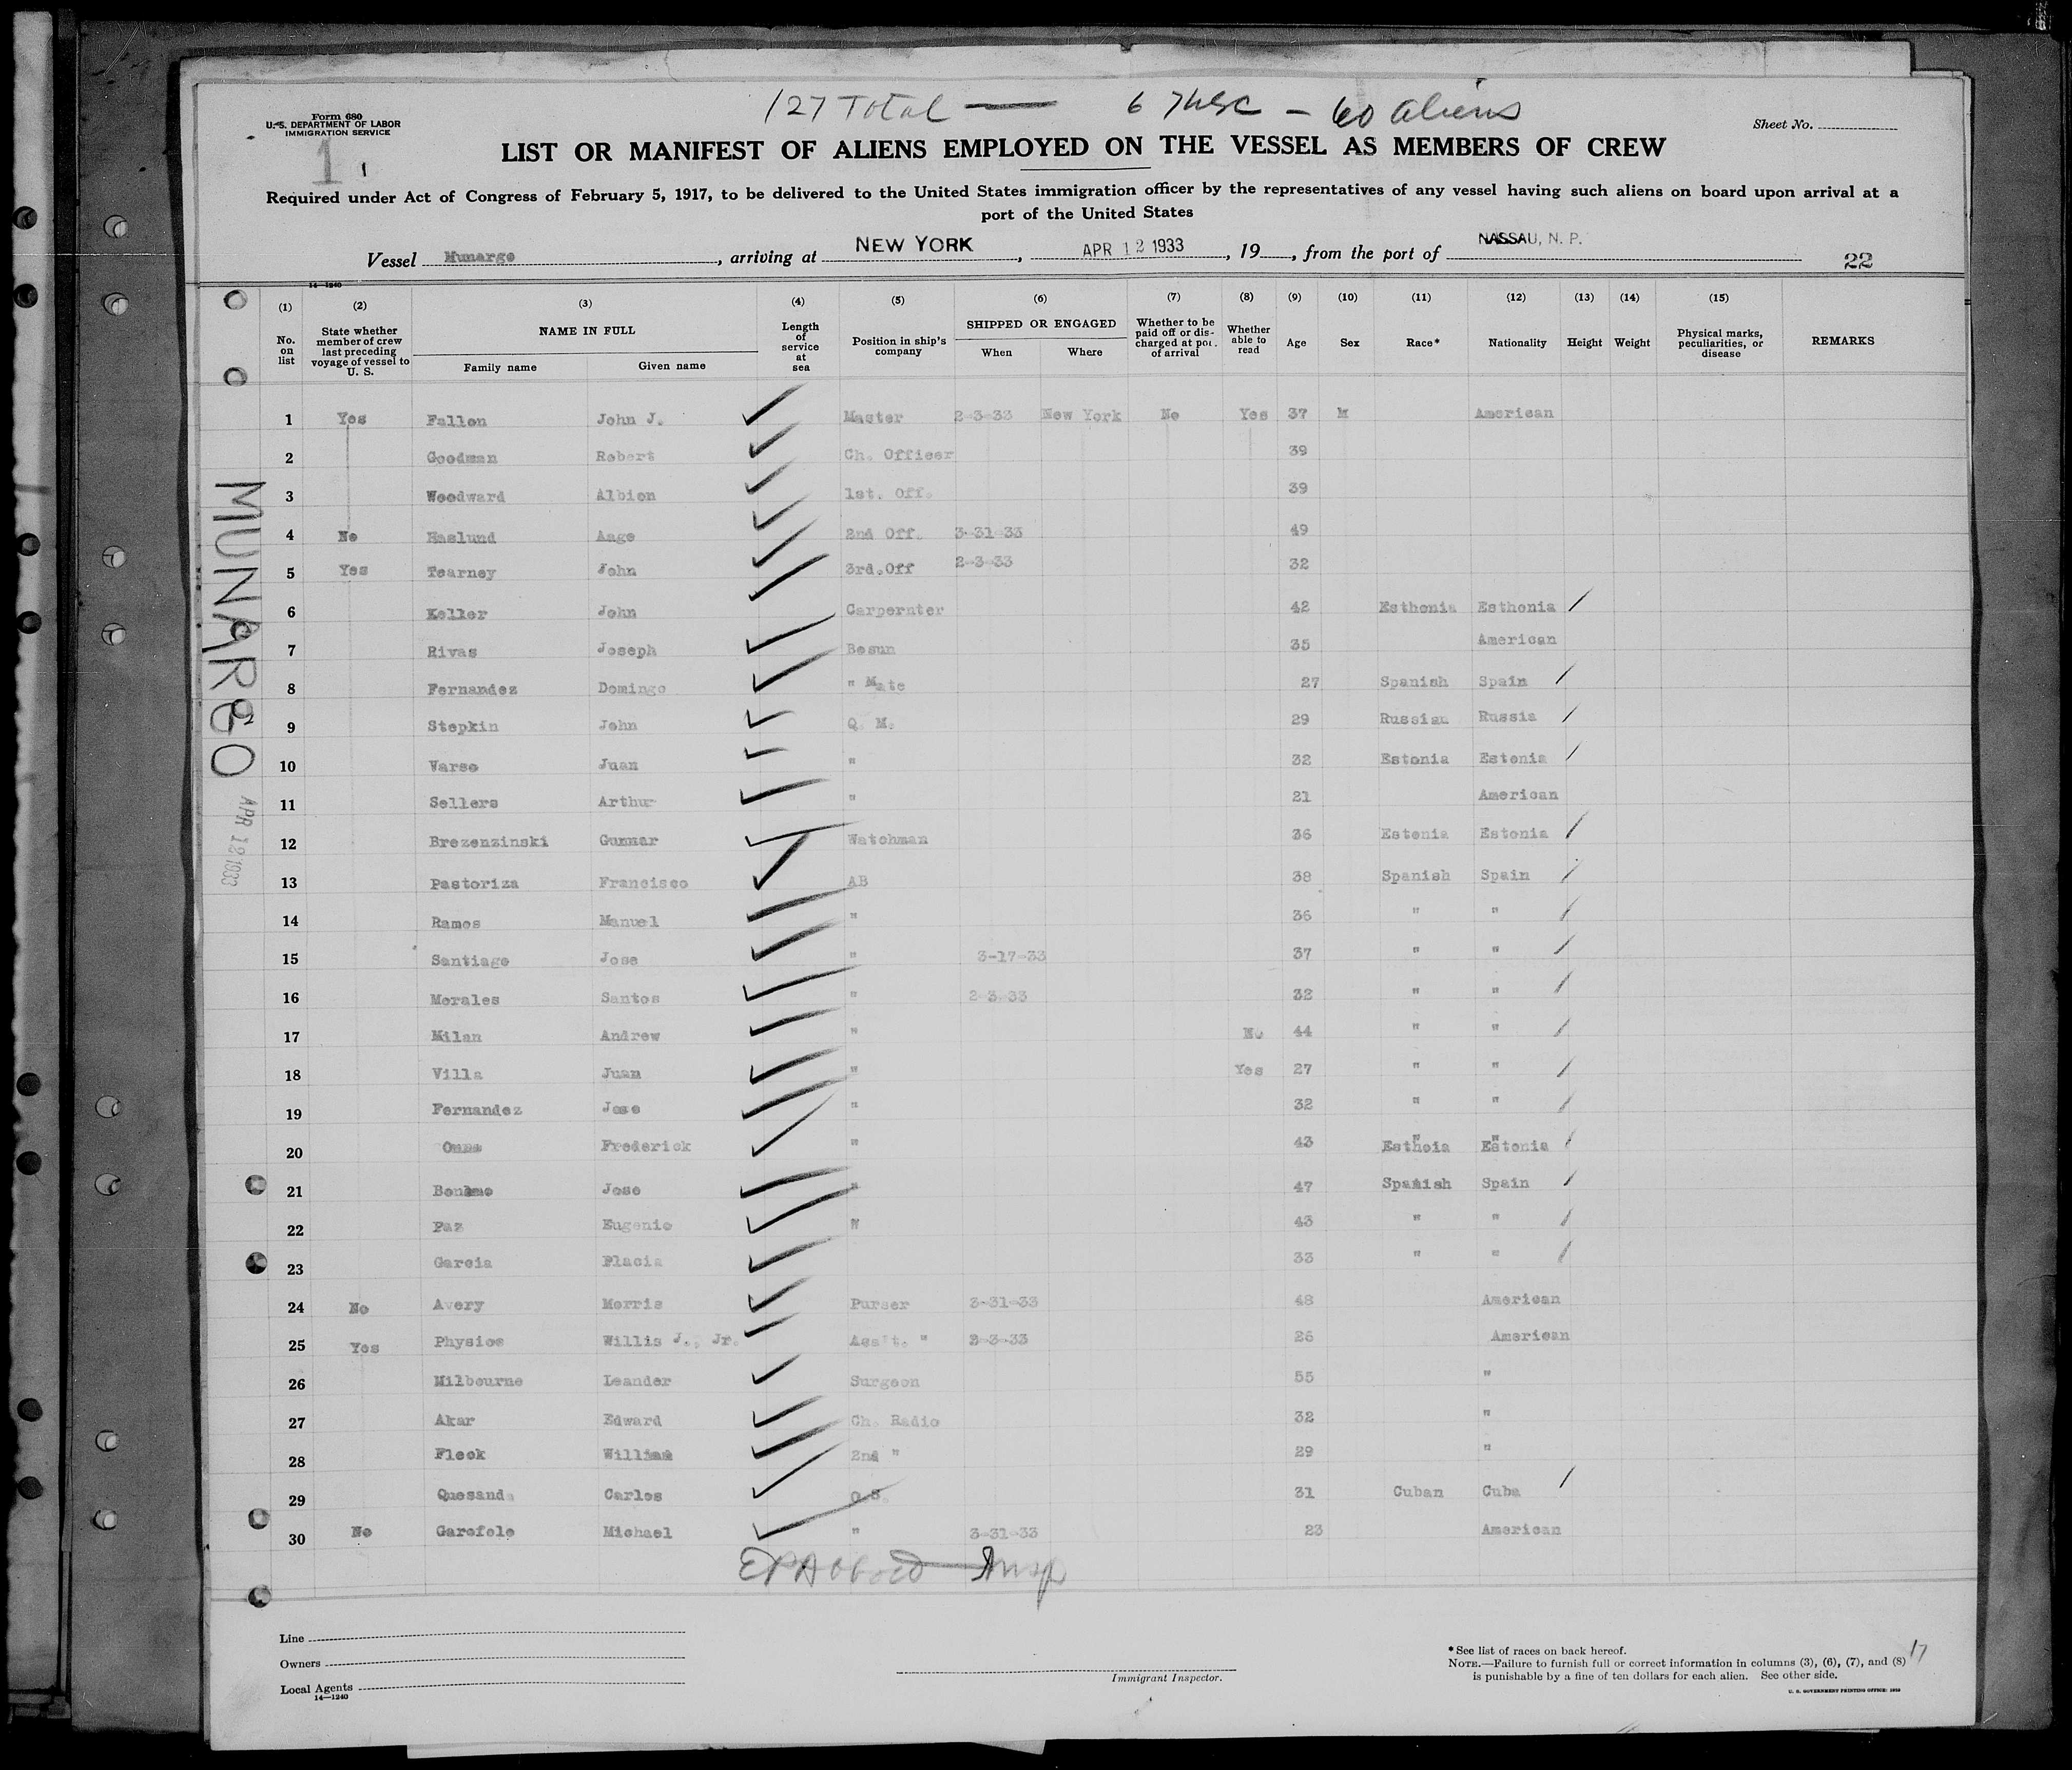 127 Total — 6 — 60 aliens
Form 680
U. S. DEPARTMENT OF LABOR
IMMIGRATION SERVICE
Sheet No.
1
LIST OR MANIFEST OF ALIENS EMPLOYED ON THE VESSEL AS MEMBERS OF CREW
Required under Act of Congress of February 5, 1917, to be delivered to the United States immigration officer by the representatives of any vessel having such aliens on board upon arrival at a
port of the United States
Vessel Munargo, arriving at NEW YORK, APR 12 1933, 19, from the port of NASSAU, N. P.
22
14—1240
(1) (2) (3) (4) (5) (6) (7) (8) (9) (10) (11) (12) (13) (14) (15)
No. on list State whether member of crew last preceding voyage of vessel to U. S. NAME IN FULL Family name Given name Length of service at sea Position in ship's company SHIPPED OR ENGAGED When Where Whether to be paid off or discharged at port of arrival Whether able to read Age Sex Race* Nationality Height Weight Physical marks, peculiarities, or disease REMARKS
1 Yes Fallon John J. Master 2-3-33 New York No Yes 37 M American
2 Goodman Robert Ch. Officer 39
3 Woodward Albion 1st. Off. 39
4 No Haslund Aage 2nd Off. 3-31-33 49
5 Yes Tearney John 3rd.Off 2-3-33 32
6 Keller John Carpernter 42 Esthonia Esthonia
7 Rivas Joseph Bosun 35 American
8 Fernandez Domingo " Mate 27 Spanish Spain
9 Stepkin John Q. M. 29 Russian Russia
10 Varso Juan " 32 Estonia Estonia
11 Sellers Arthur " 21 American
12 Brezenzinski Gunnar Watchman 36 Estonia Estonia
13 Pastoriza Francisco AB 38 Spanish Spain
14 Ramos Manuel " 36 " "
15 Santiago Jose " 3-17-33 37 " "
16 Morales Santos " 2-3-33 32 " "
17 Milan Andrew " No 44 " "
18 Villa Juan " Yes 27 " "
19 Fernandez Jose " 32 " "
20 Frederick " 43 Esthoia Estonia
21 Jose " 47 Spanish Spain
22 Paz Eugenio " 43 " "
23 Garcia Placia 33 " "
24 No Avery Morris Purser 3-31-33 48 American
25 Yes Physioc Willis J., Jr. Ass't. " 2-3-33 26 American
26 Milbourne Leander Surgeon 55 "
27 Akar Edward Ch. Radio 32 "
28 Fleck William 2nd " 29 "
29 Quesanda Carlos O.S. 31 Cuban Cuba
30 No Garofolo Michael " 3-31-33 23 American
Insp
MUNARGO
APR 12 1933
Line
Owners
Local Agents
14—1240
Immigrant Inspector.
* See list of races on back hereof.
NOTE.—Failure to furnish full or correct information in columns (3), (6), (7), and (8)
is punishable by a fine of ten dollars for each alien. See other side.
17